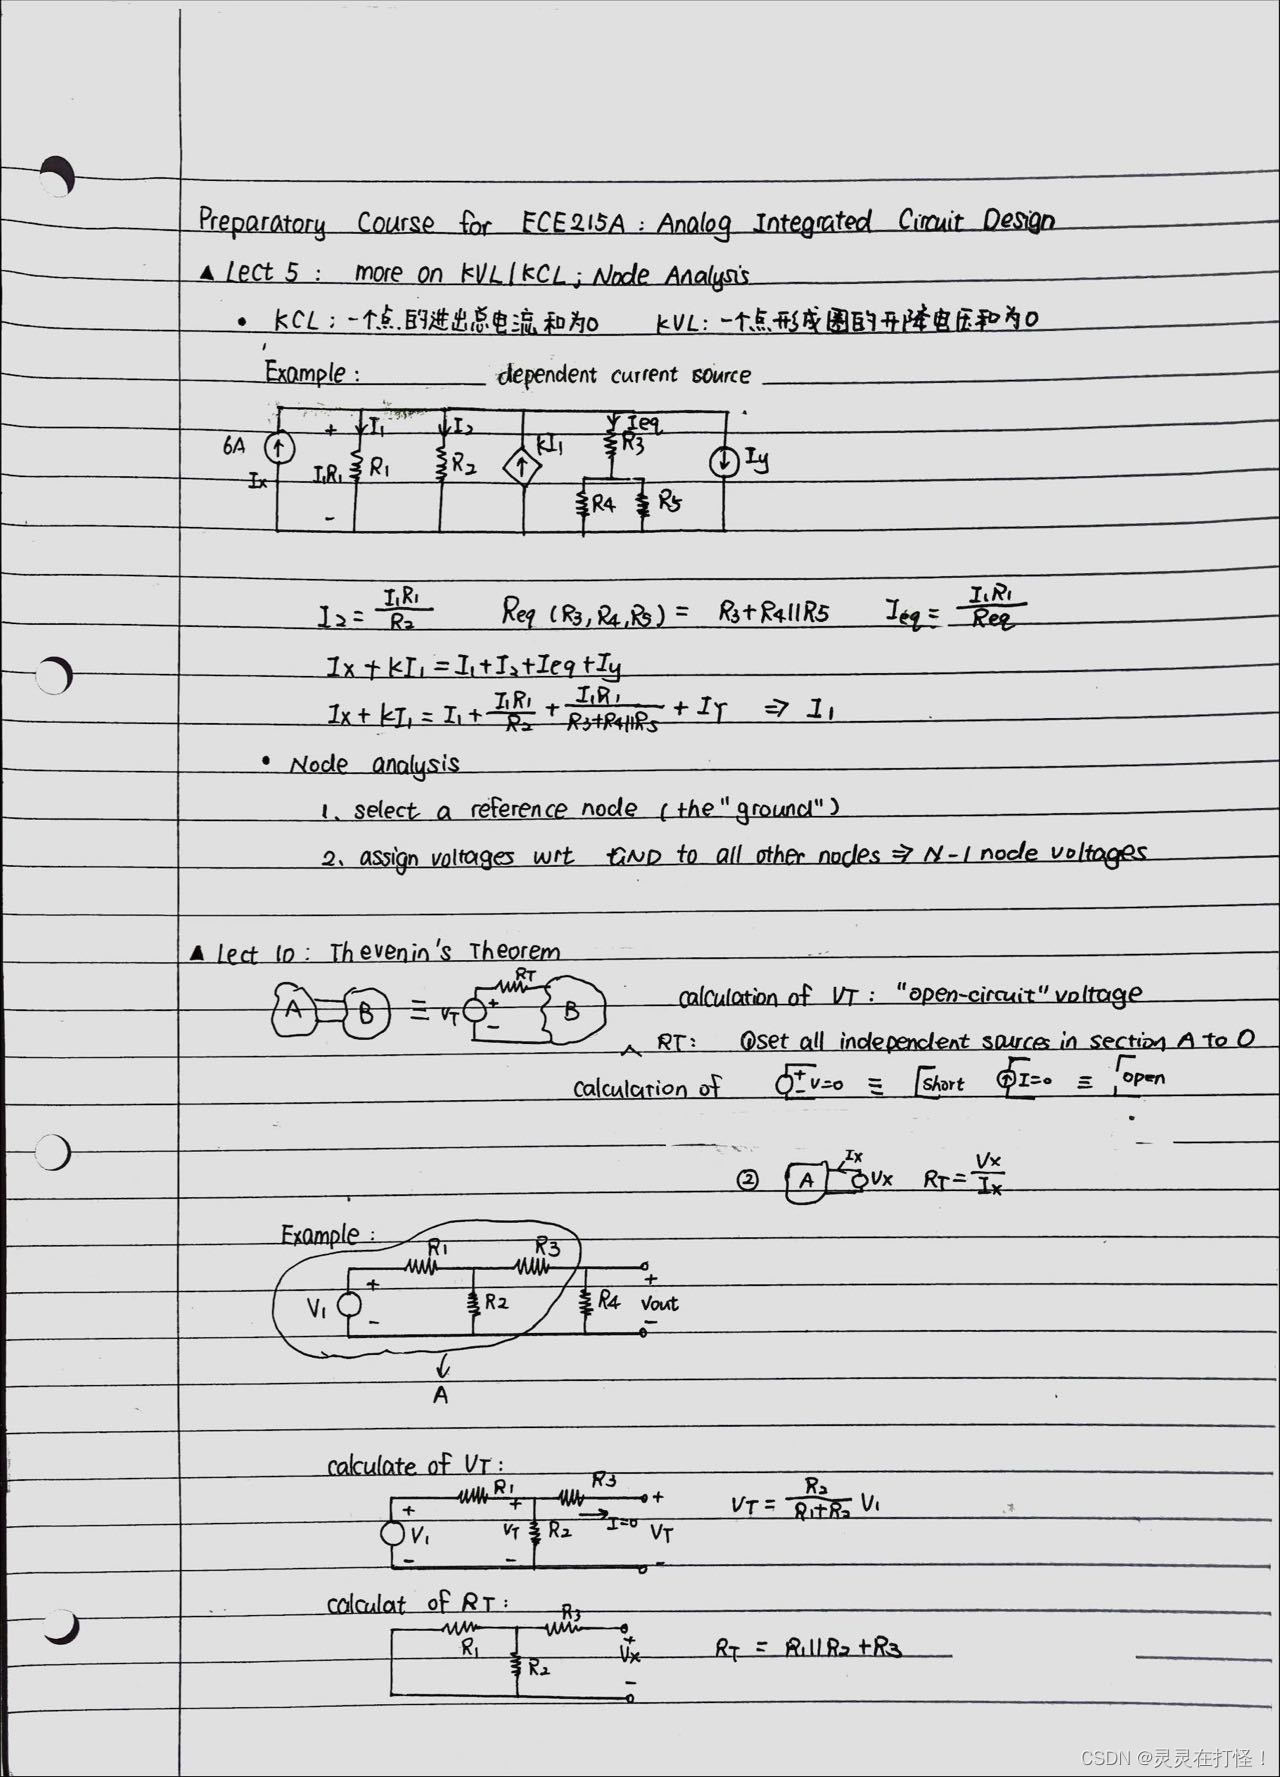 Preparatory Course for ECE215A : Analog Integrated Circuit Design
▲ Lect 5 : more on KVL/KCL ; Node Analysis
• KCL : 一个点的进出总电流和为0 KVL: 一个点形成圈的升降电压和为0
Example : dependent current source
6A Ix + I1R1 - I1 R1 I2 R2 kI1 Ieq R3 R4 R5 Iy
I2 = I1R1/R2 Req (R3,R4,R5) = R3+R4||R5 Ieq = I1R1/Req
Ix + kI1 = I1 + I2 + Ieq + Iy
Ix + kI1 = I1 + I1R1/R2 + I1R1/R3+R4||R5 + IY ⇒ I1
• Node analysis
1. select a reference node (the "ground")
2. assign voltages wrt GND to all other nodes ⇒ N-1 node voltages
▲ Lect 10 : Thevenin's Theorem
A B ≡ VT + - RT B calculation of VT : "open-circuit" voltage
RT : ①set all independent sources in section A to 0
calculation of + - V=0 ≡ short I=0 ≡ open
② A Ix Vx RT = Vx/Ix
Example :
V1 + - R1 R2 R3 R4 + Vout -
A
calculate of VT :
V1 + - R1 + VT - R2 R3 I=0 + VT - VT = R2/R1+R2 V1
calculat of RT :
R1 R2 R3 + Vx - RT = R1||R2 + R3
CSDN @灵灵在打怪！